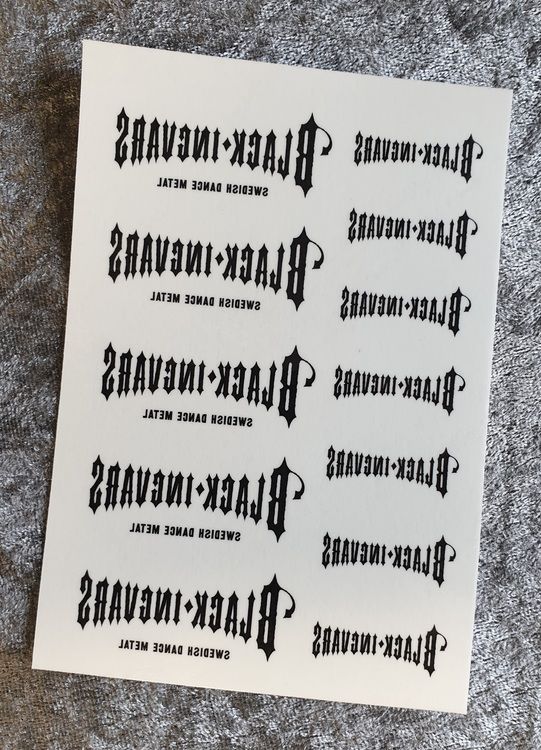 BLACK·INGVARS
SWEDISH DANCE METAL
BLACK·INGVARS
SWEDISH DANCE METAL
BLACK·INGVARS
SWEDISH DANCE METAL
BLACK·INGVARS
SWEDISH DANCE METAL
BLACK·INGVARS
SWEDISH DANCE METAL
BLACK·INGVARS
BLACK·INGVARS
BLACK·INGVARS
BLACK·INGVARS
BLACK·INGVARS
BLACK·INGVARS
BLACK·INGVARS